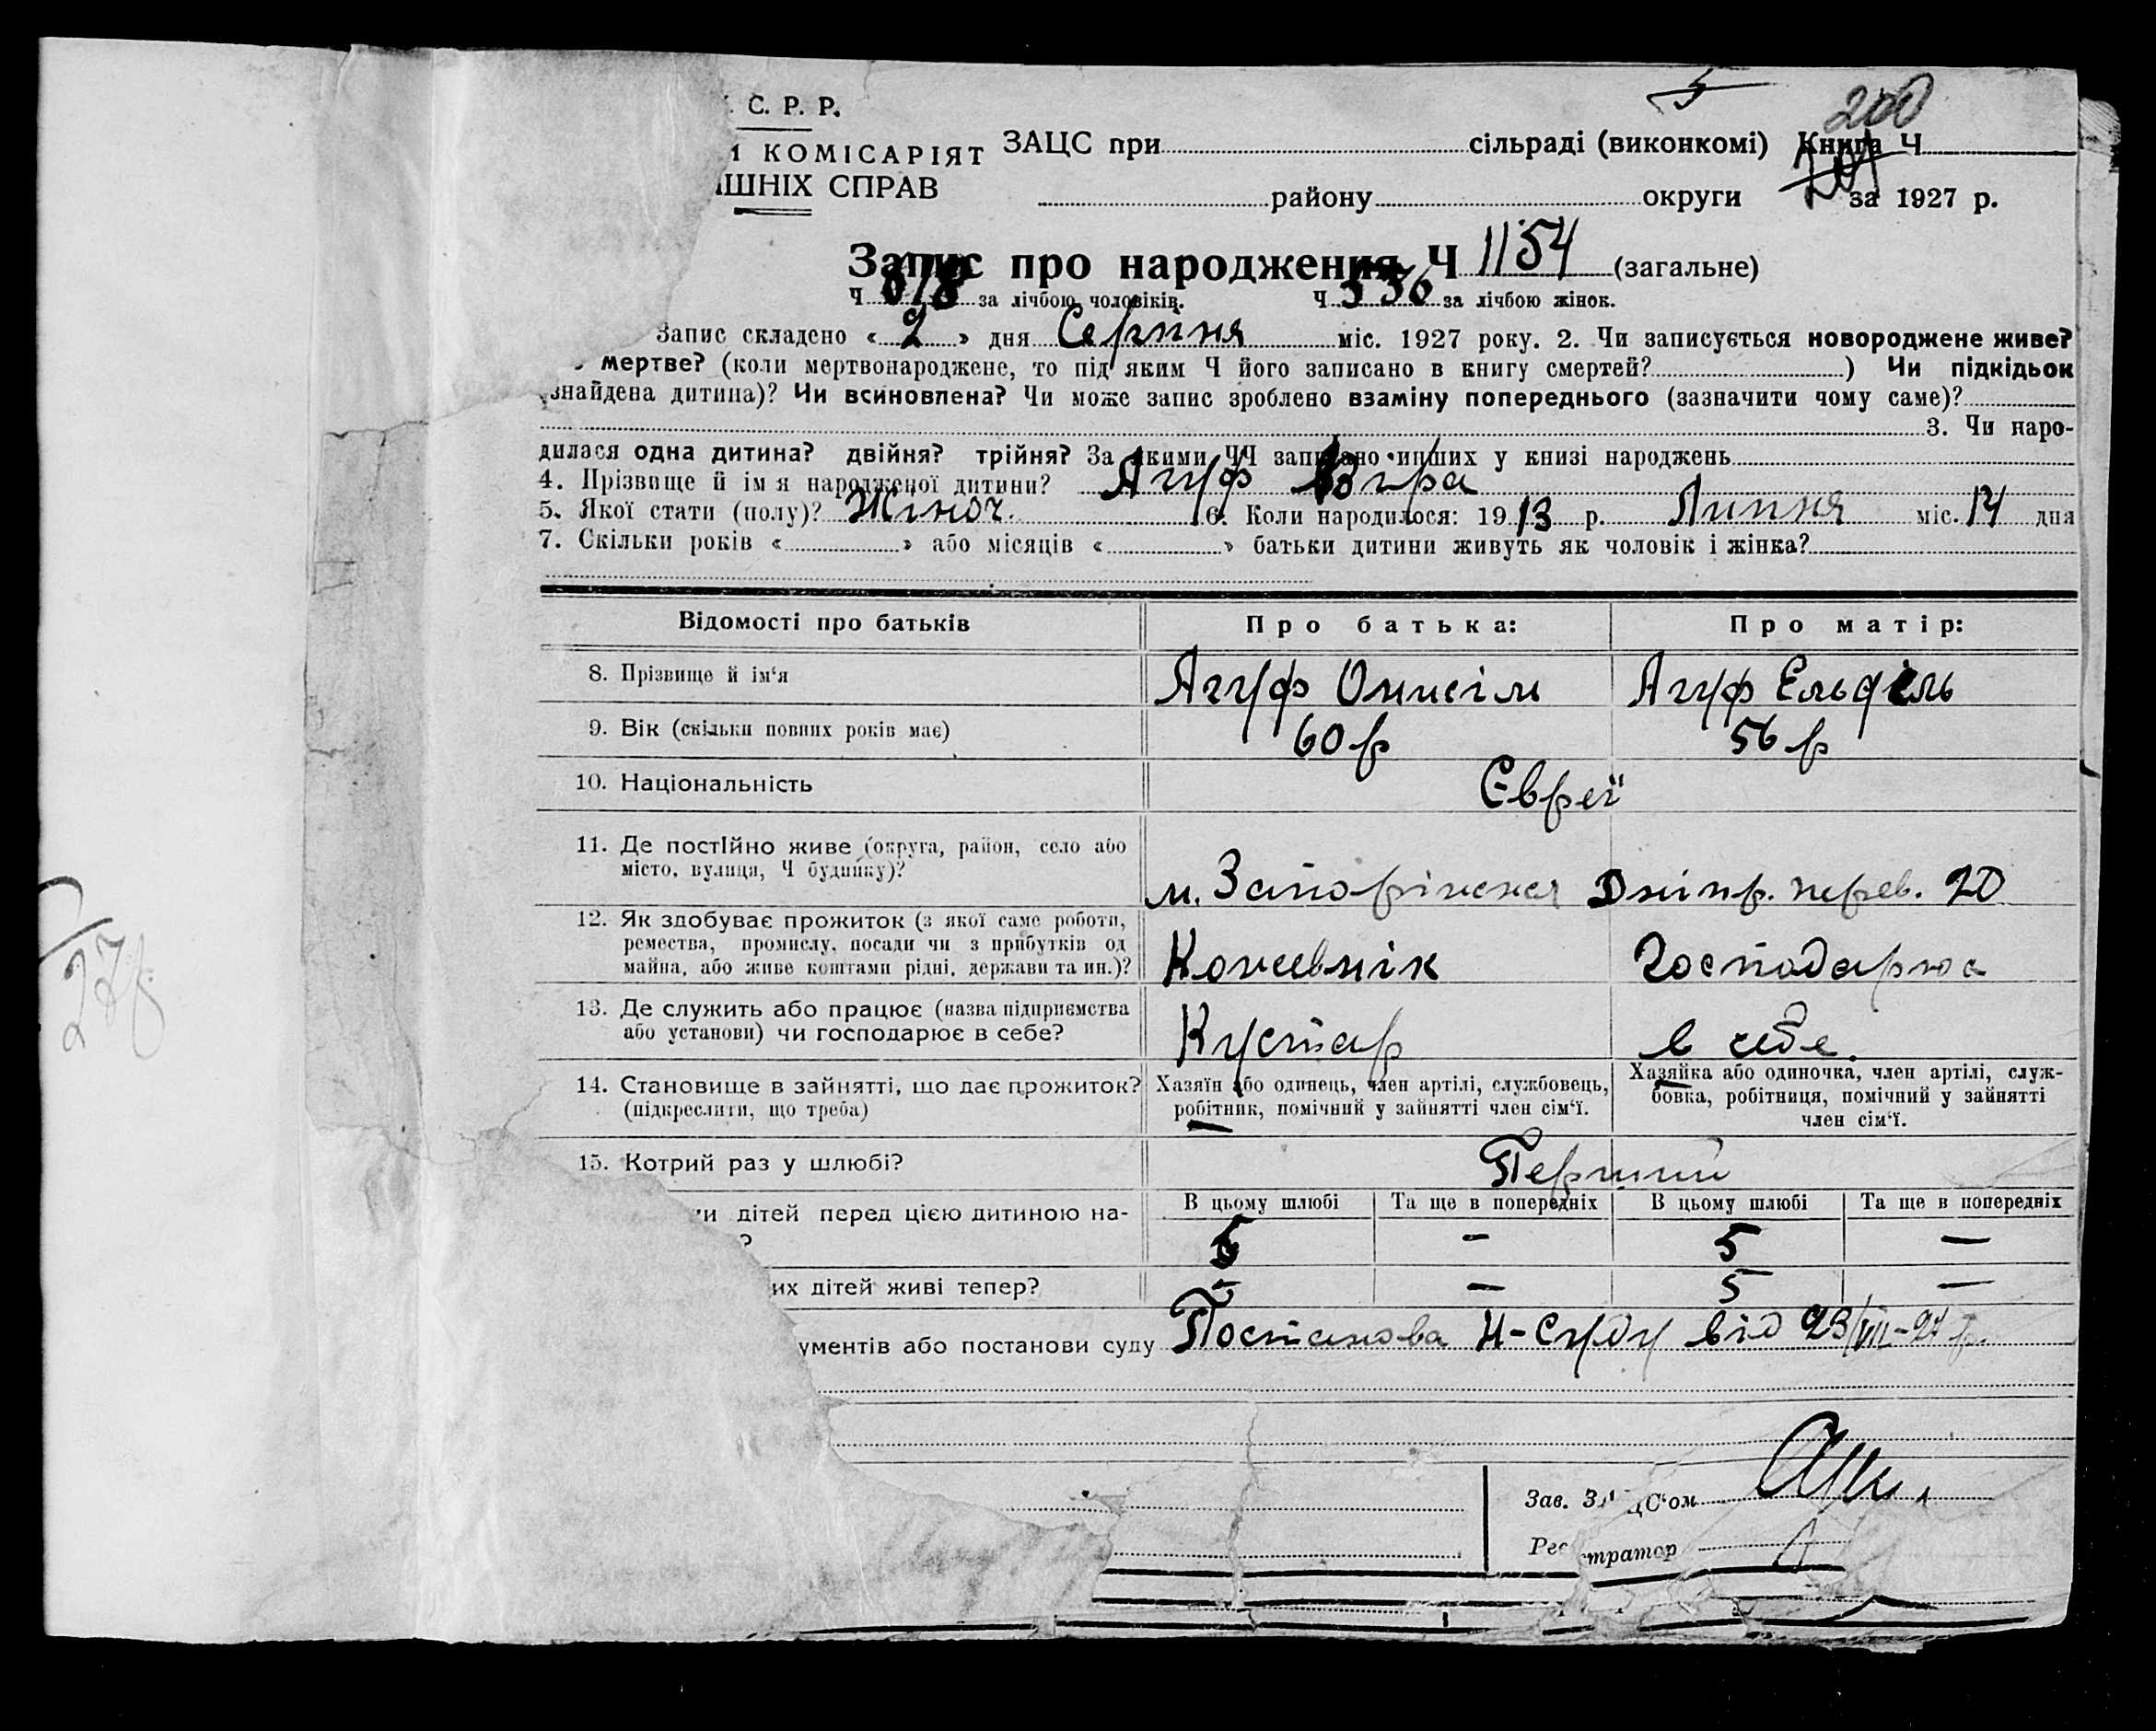 С. Р. Р.
КОМІСАРІЯТ
ШНІХ СПРАВ
ЗАЦС при сільраді (виконкомі) Книга Ч
району округи за 1927 р.
5
200
Запис про народження Ч 1154 (загальне)
Ч 618 за лічбою чоловіків. Ч 536 за лічбою жінок.
Запис складено « 2 » дня Серпня міс. 1927 року. 2. Чи записується новороджене живе?
мертве? (коли мертвонароджене, то під яким Ч його записано в книгу смертей? ) Чи підкідьок
знайдена дитина)? Чи всиновлена? Чи може запис зроблено взаміну попереднього (зазначити чому саме)?
3. Чи наро-
дилася одна дитина? двійня? трійня? За якими ЧЧ записано инших у книзі народжень
4. Прізвище й ім я народженої дитини? Агуф Віра
5. Якої стати (полу)? Жіноч. 6. Коли народилося: 1913 р. Липня міс. 14 дня
7. Скільки років « » або місяців « » батьки дитини живуть як чоловік і жінка?
Відомості про батьків Про батька: Про матір:
8. Прізвище й ім‘я Агуф Онисім Агуф
9. Вік (скільки повних років має) 60 р 56 р
10. Національність Євреї
11. Де постійно живе (округа, район, село або
місто, вулиця, Ч будинку)?
м. Запоріжжя Дніпр. перев. 20
12. Як здобуває прожиток (з якої саме роботи,
ремества, промислу, посади чи з прибутків од
майна, або живе коштами рідні, держави та ин.)?
Кожевнік Господарює
13. Де служить або працює (назва підприємства
або установи) чи господарює в себе?
Кустар в себе.
14. Становище в зайнятті, що дає прожиток?
(підкреслити, що треба)
Хазяїн або одинець, член артілі, службовець,
робітник, помічний у зайнятті член сім‘ї.
Хазяйка або одиночка, член артілі, служ-
бовка, робітниця, помічний у зайнятті
член сім‘ї.
15. Котрий раз у шлюбі? Перший
дітей перед цією дитиною на-
?
В цьому шлюбі Та ще в попередніх В цьому шлюбі Та ще в попередніх
5 — 5 —
их дітей живі тепер? 5 — 5 —
ументів або постанови суду Постанова Н-Суду від 23/VII-27 р.
Зав. ЗАЦС‘ом
Реєстратор